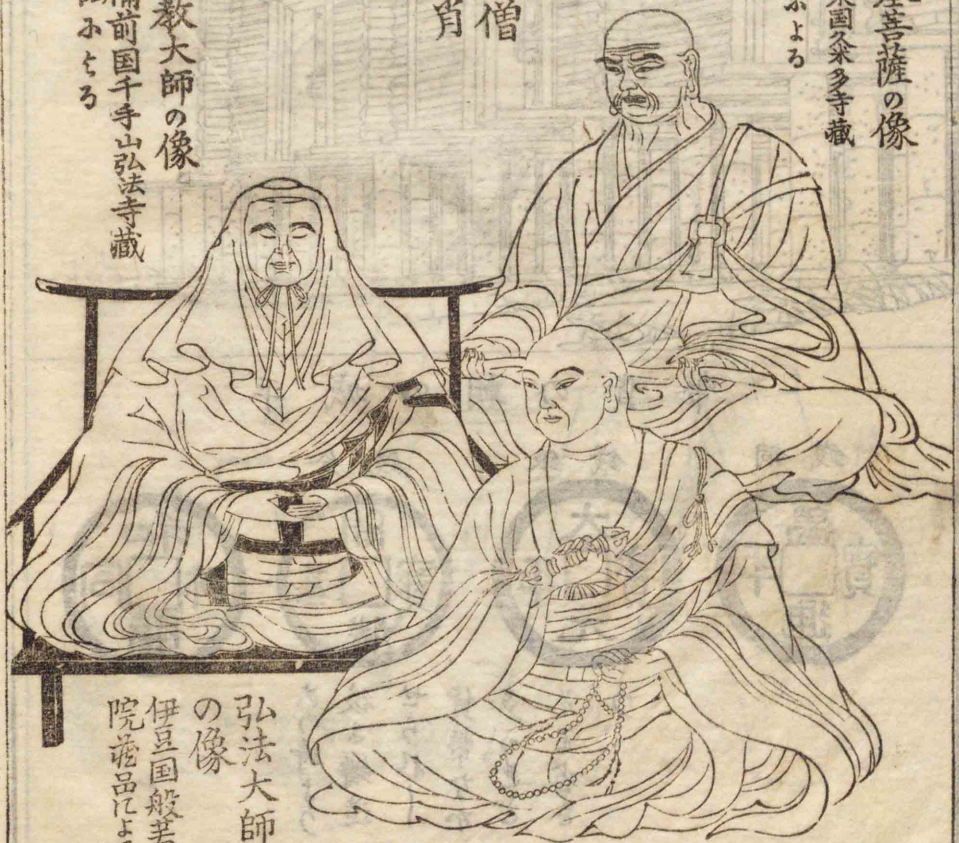 菩薩の像
国久米多寺藏
による
僧
肖
教大師の像
備前国千手山弘法寺藏
による
弘法大師
の像
伊豆国般若
院藏品によ